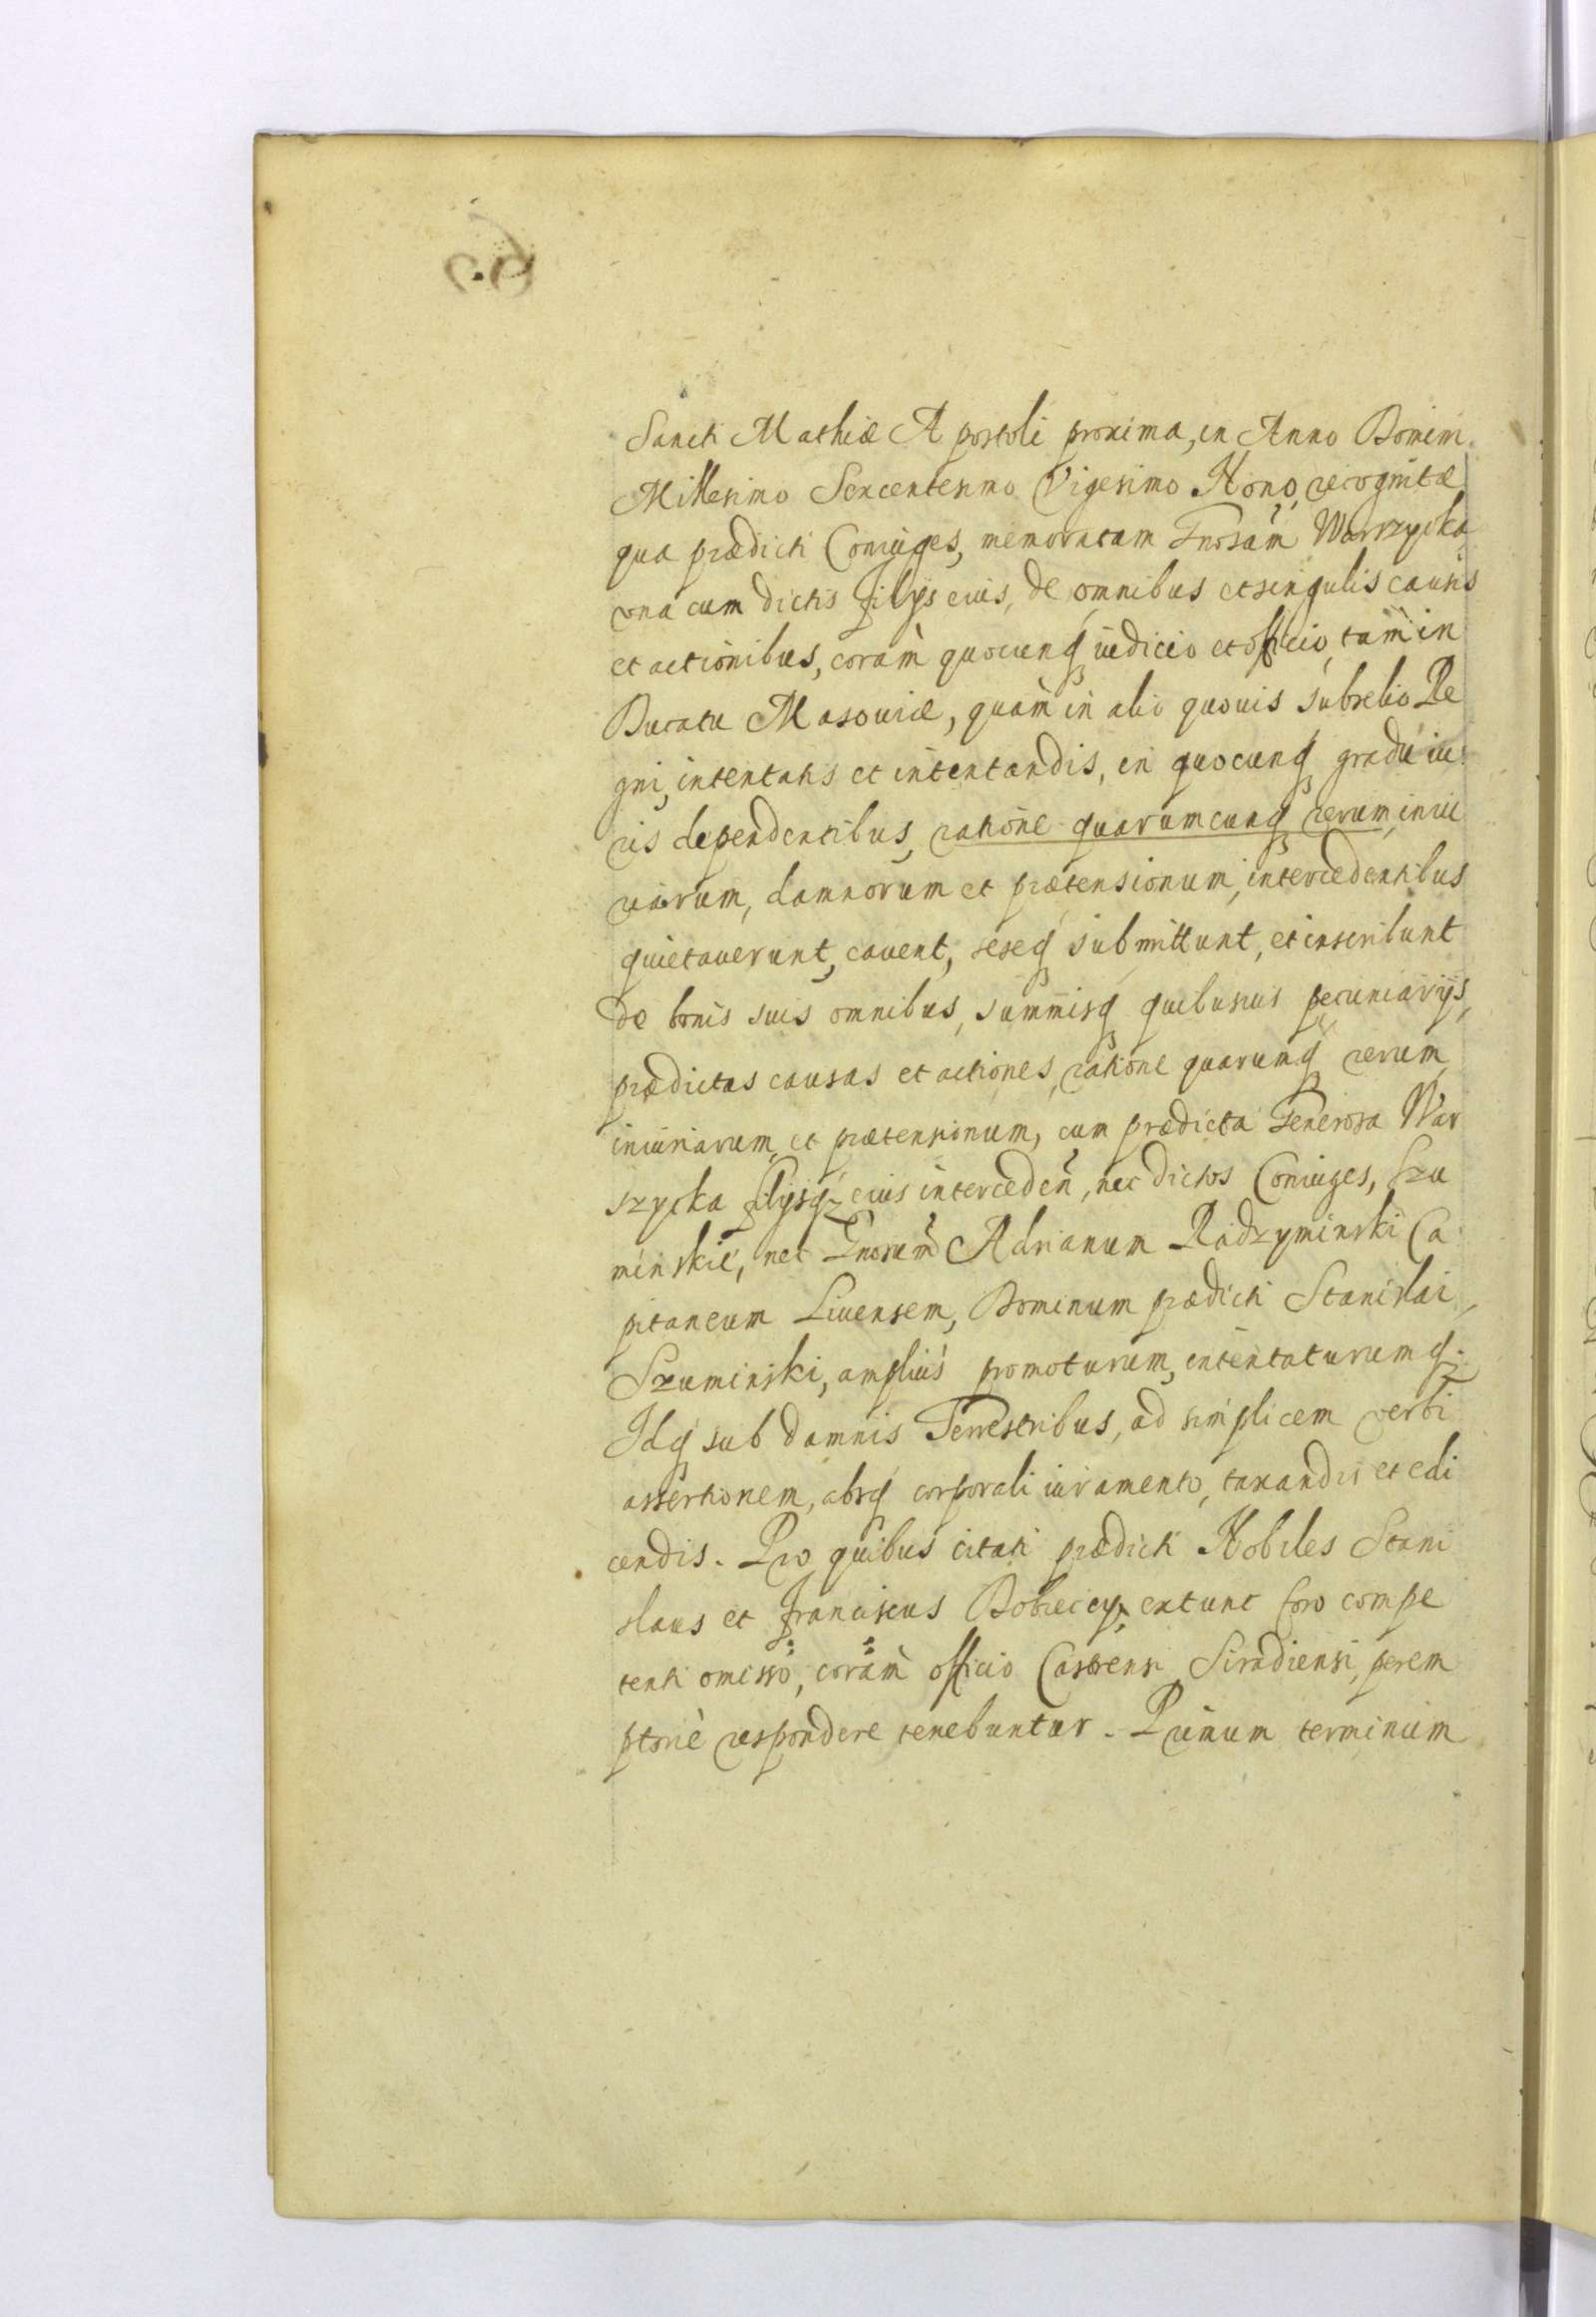 Sancti Mathiæ Apostoli proxima, in Anno Domini
Millesimo Sexcentesimo Vigesimo Nono, recognitæ
qua prædicti Coniuges, memoratam Gnosam Warszycka
vna cum dictis filijs eius, de omnibus et singulis causis
et actionibus, coràm quocunq iudicio et officio, tam in
Ducatu Masouiæ, quàm in alio quouis subselio Re
gni, intentatis et intentandis, in quocunq gradu iu
ris dependentibus, ratione quarumcunq rerum, iniu
riarum, damnorum et prætensionum, intercedentibus
quietauerunt, cauent, seseq submittunt, et inscribunt
de bonis suis omnibus, summisq quibusuis pecuniarijs,
prædictas causas et actiones, ratione quarumq rerum,
iniuriarum, et prætensionum, cum prædicta Generosa War
szycka filijsq eius interceden, nec dictos Coniuges, Szu
minskie, nec Gnosum Adrianum Radzyminski Ca
pitaneum Liuensem, Dominum prædicti Stanislai,
Szuminski, ampliùs promoturum, intentaturumq.
Idq sub damnis Terrestribus, ad simplicem verbi
assertionem, absq corporali iuramento, taxandis et edi
cendis. Pro quibus citati prædicti Nobiles Stani
slaus et Franciscus Bobreccy, extunc foro compe
tenti omisso, coràm officio Castrensi Siradiensi, perem
ptoriè respondere tenebuntur. Primum terminum